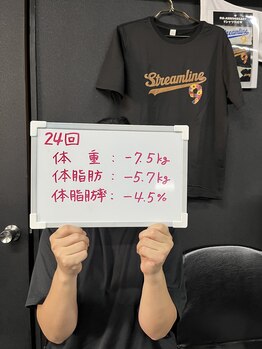 Streamline
9
Streamline
24回
体 重 : -7.5kg
体脂肪 : -5.7kg
体脂脂率 : -4.5%